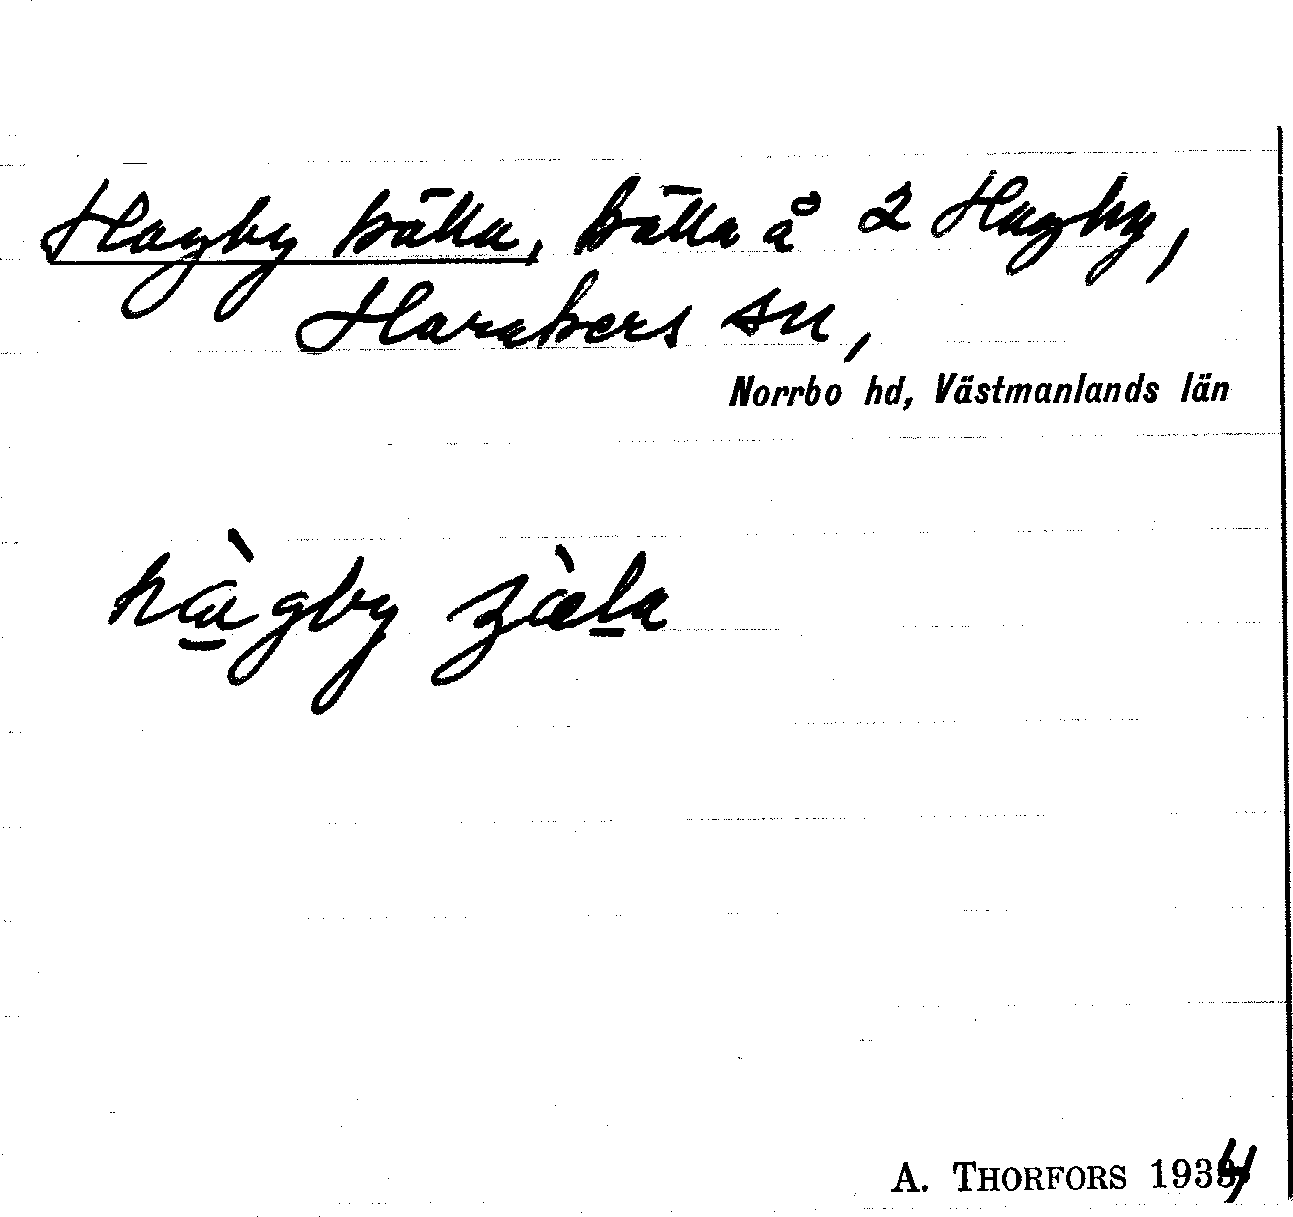 Hagby källa, källa å 2 Hagby,
Harakers sn,
Norrbo hd, Västmanlands län
hàgby
A. THORFORS 1934